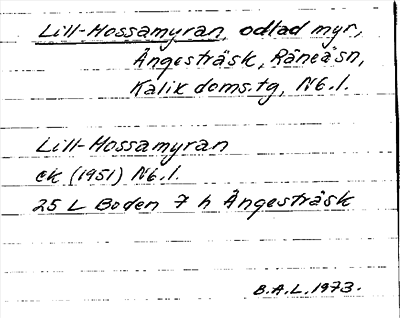 Lill-Hossamyran, odlad myr,
Ängesträsk, Råneå sn,
Kalix doms.tg, Nb.l.
Lill-Hossamyran
ek (1951) Nb.l.
25 L Boden 7 h Ängesträsk
B.A.L. 1973.